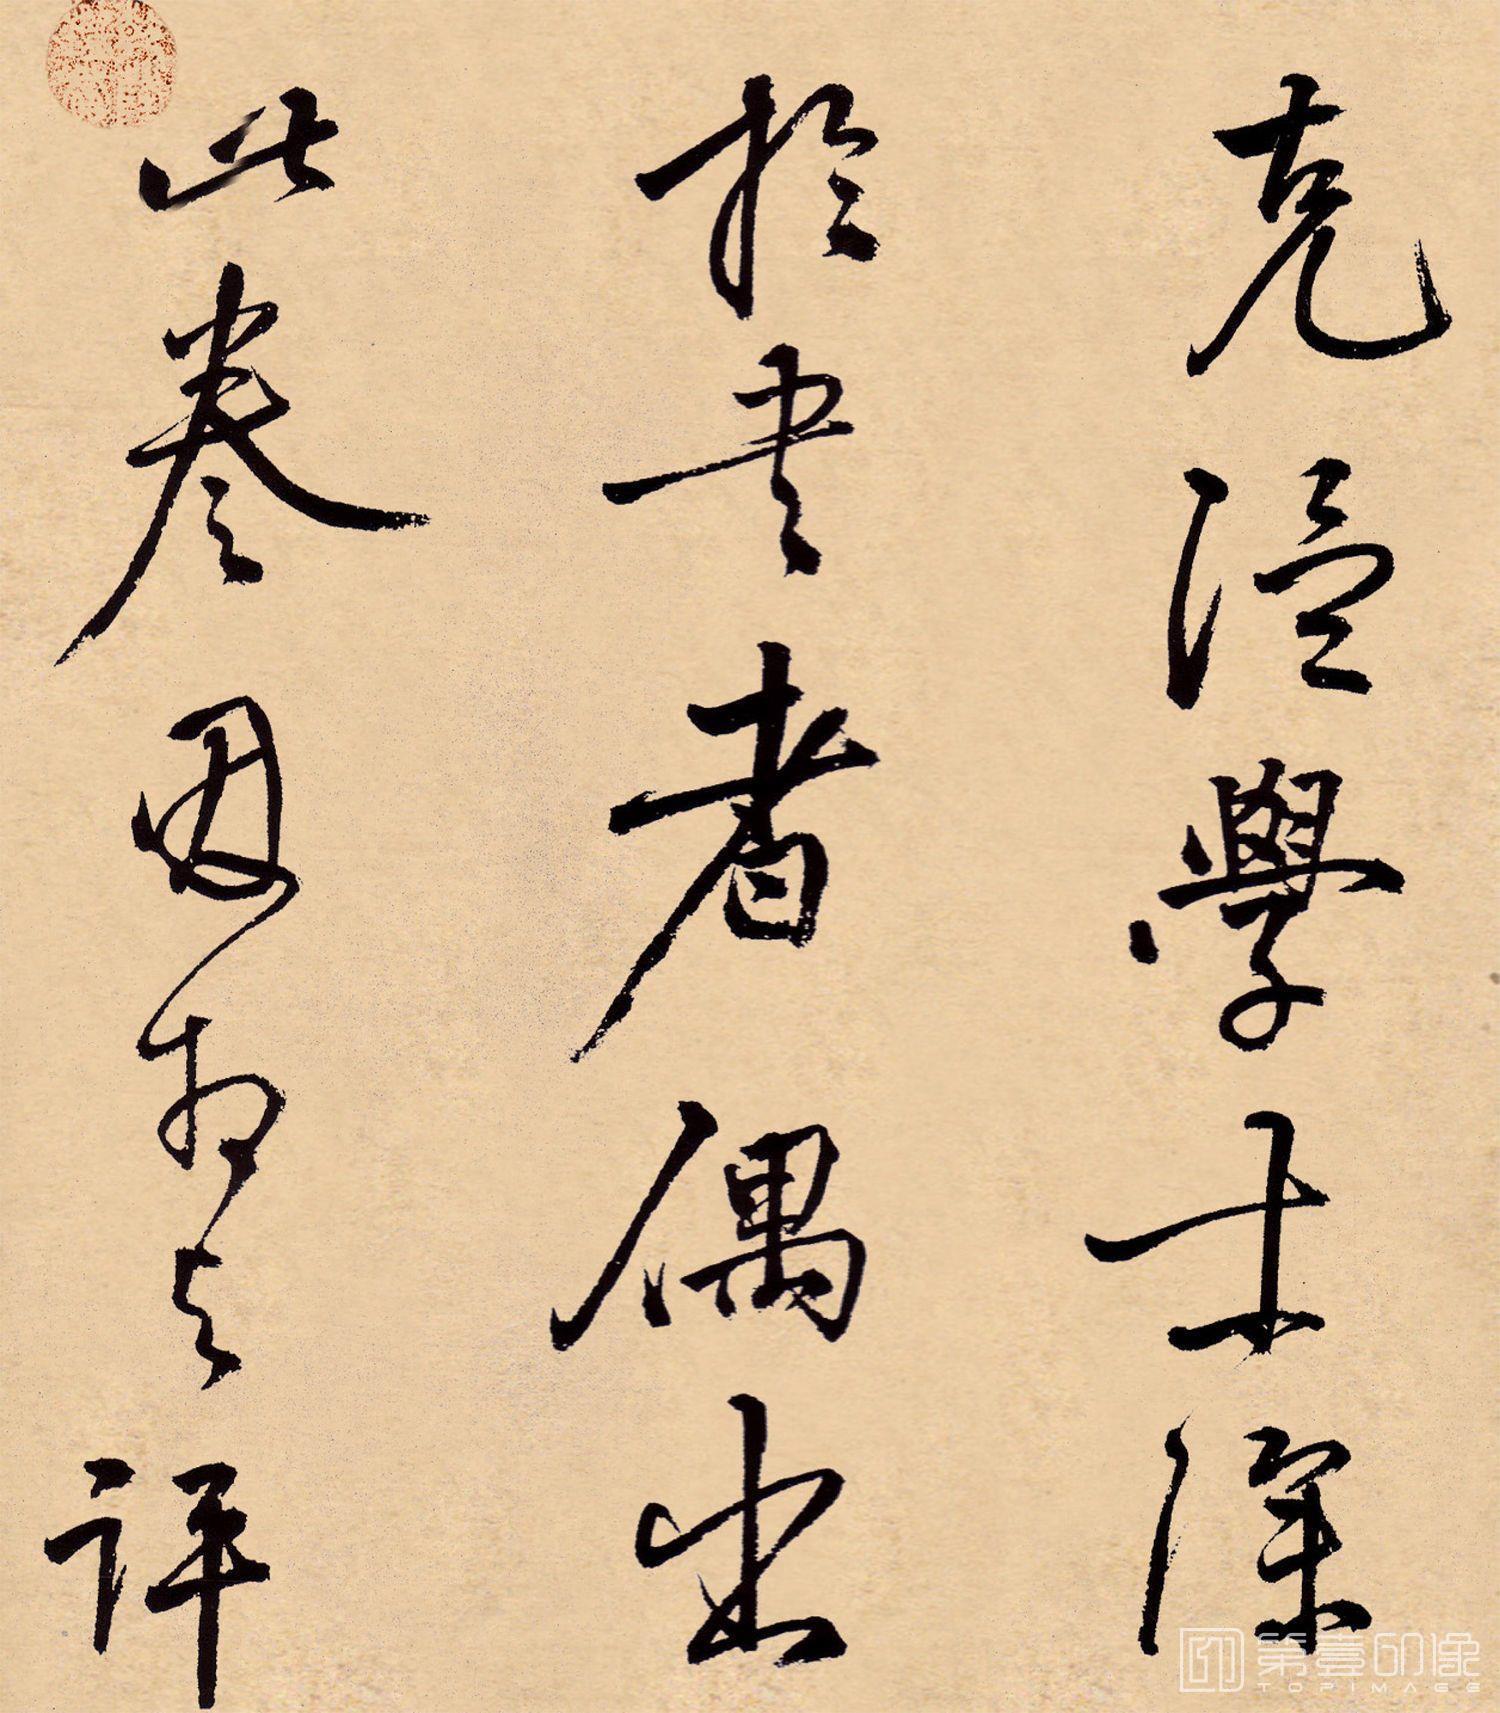 克温學士深
於書者偶出
此卷因相與評
第壹印像
TOPIMAGE